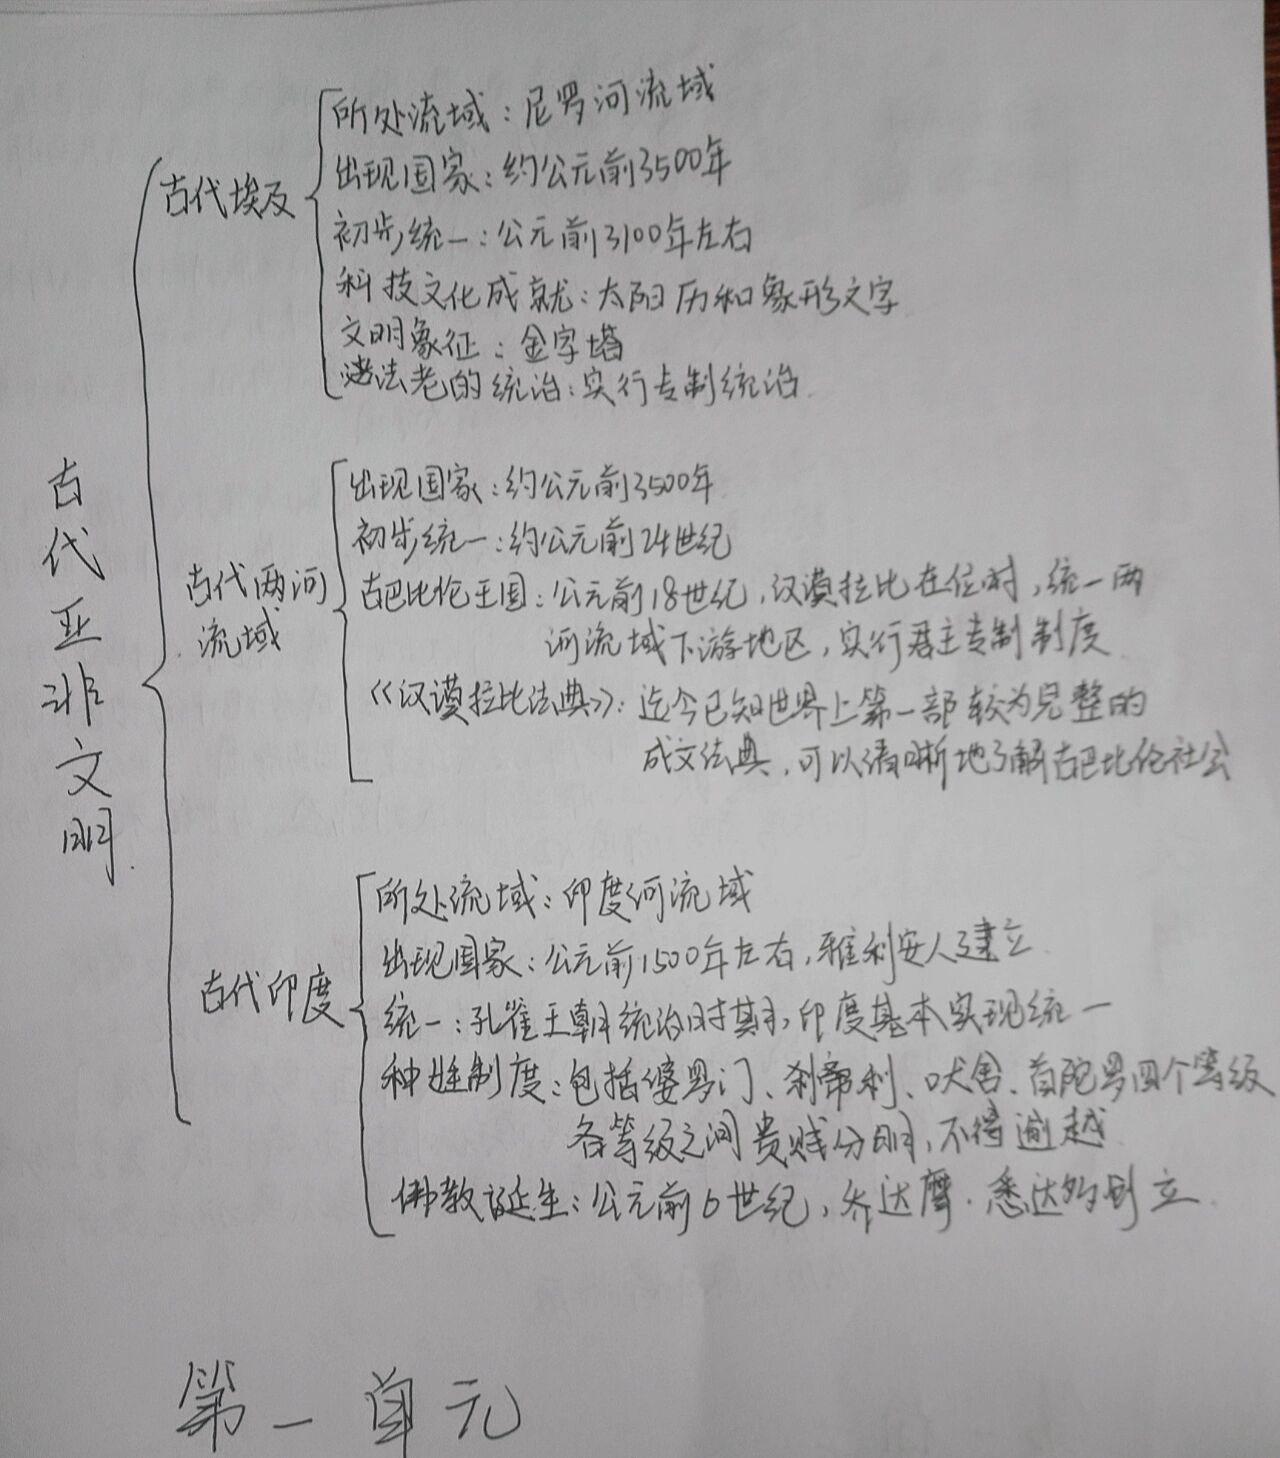 所处流域：尼罗河流域
出现国家：约公元前3500年
古代埃及
初步统一：公元前3100年左右
科技文化成就：太阳历和象形文字
文明象征：金字塔
法老的统治：实行专制统治
古代亚非文明
出现国家：约公元前3500年
初步统一：约公元前24世纪
古代两河
流域
古巴比伦王国：公元前18世纪，汉谟拉比在位时，统一两
河流域下游地区，实行君主专制制度
《汉谟拉比法典》：迄今已知世界上第一部较为完整的
成文法典，可以清晰地了解古巴比伦社会
所处流域：印度河流域
出现国家：公元前1500年左右，雅利安人建立
古代印度
统一：孔雀王朝统治时期，印度基本实现统一
种姓制度：包括婆罗门、刹帝利、吠舍、首陀罗四个等级
各等级之间贵贱分明，不得逾越
佛教诞生：公元前6世纪，乔达摩·悉达多创立
第一单元